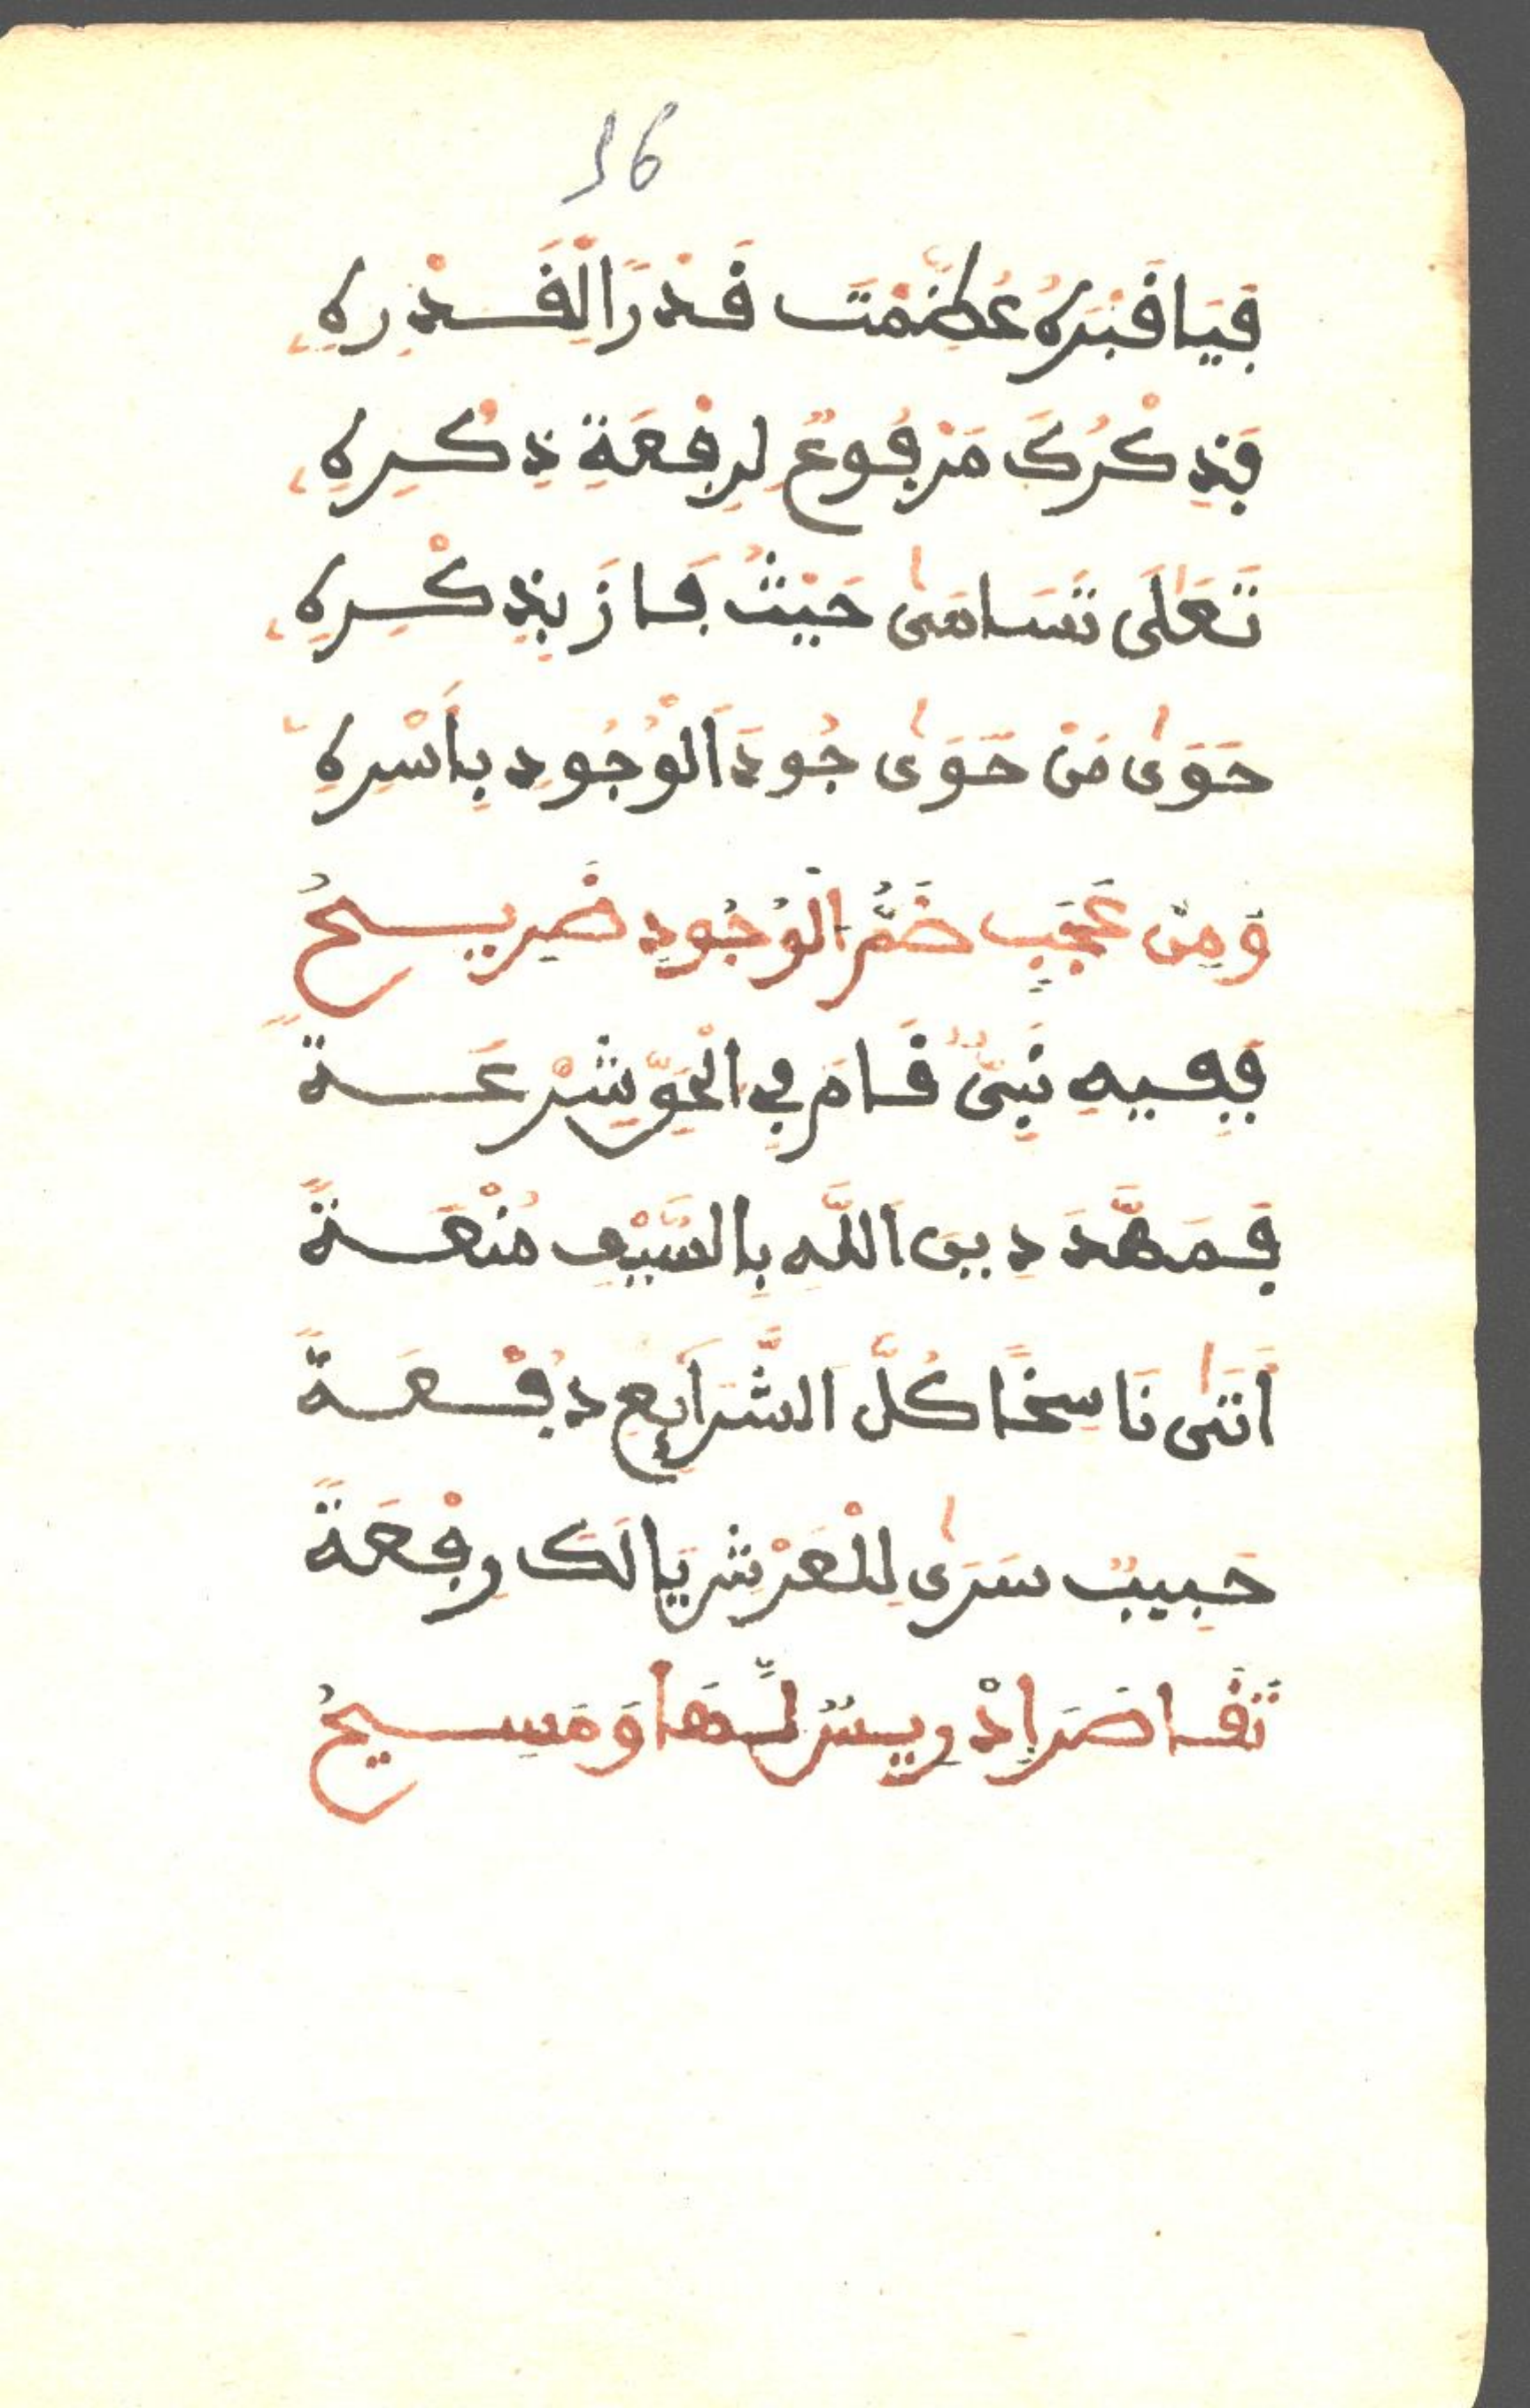 16
فَيَا قَبْرَهُ عُظِّمْتَ قَدْرًا لِقَدْرِهِ
فَذِكْرُكَ مَرْفُوعٌ لِرِفْعَةِ ذِكْرِهِ
تَعَلَى تَسَامَى حَيْثُ فَازَ بِذِكْرِهِ
حَوَى مَنْ حَوَى جُودَ الْوُجُودِ بِأَسْرِهِ
وَمِنْ عَجَبٍ ضَمُّ الْوُجُودِ ضَرِيحُ
فَفِيهِ نَبِيٌّ قَامَ فِي الْحَقِّ شِرْعَةً
فَمَهَّدَ دِينَ اللَّهِ بِالسَّيْفِ مُنْعَةً
أَتَى نَاسِخًا كُلَّ الشَّرَائِعِ دُفْعَةً
حَبِيبٌ سَرَى لِلْعَرْشِ يَالَكَ رِفْعَةً
تَقَاصَرَ إِدْرِيسٌ لَّهَا وَمَسِيحُ